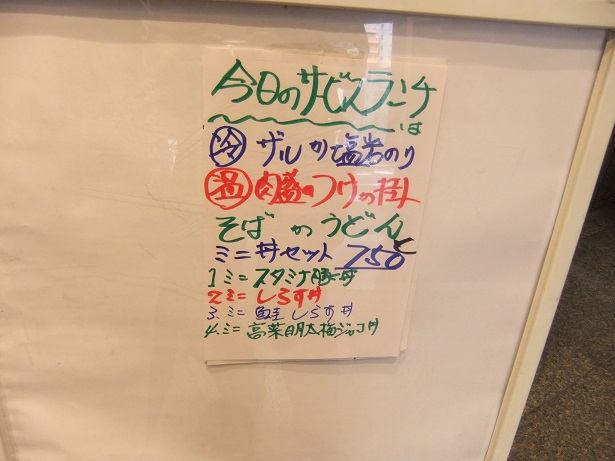 今日のサービスランチ
は
冷 ザルか塩岩のり
温 肉盛のつけか掛
そばかうどん
と
ミニ丼セット 750
1 ミニ スタミナ豚丼
2 ミニ しらす丼
3. ミニ 鮭しらす丼
4. ミニ 高菜明太梅ジャコ丼